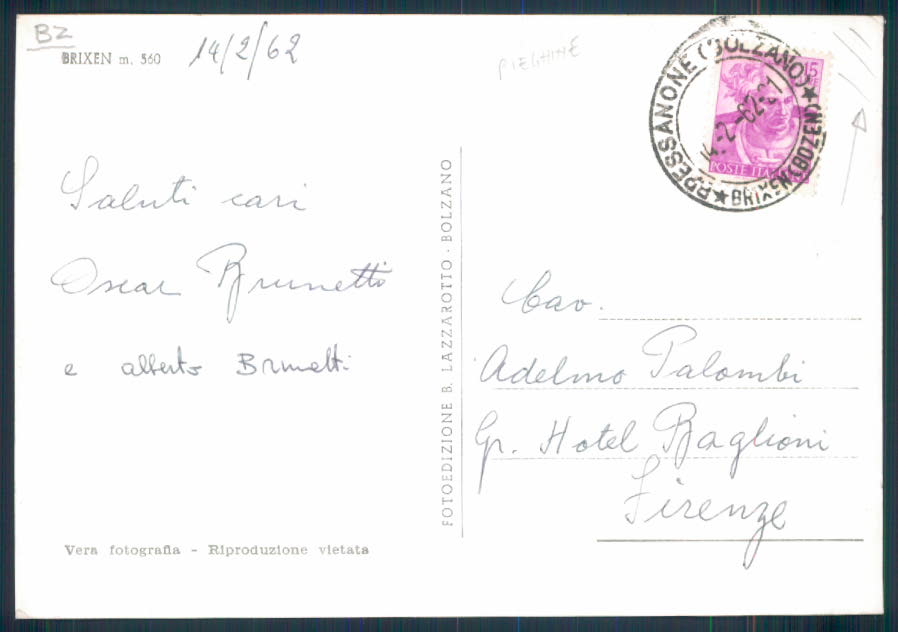 BZ
BRIXEN m. 560
14/2/62
PIEGHINE
PRESSANONE (BOLZANO) ★ BRIXEN (BOZEN) ★
14.-2.-62.
15
POSTE ITA
Saluti cari
Oscar Brunetti
e alberto Brunetti
FOTOEDIZIONE B. LAZZAROTTO - BOLZANO
Cav.
Adelmo Palombi
Gr. Hotel Baglioni
Firenze
Vera fotografia - Riproduzione vietata